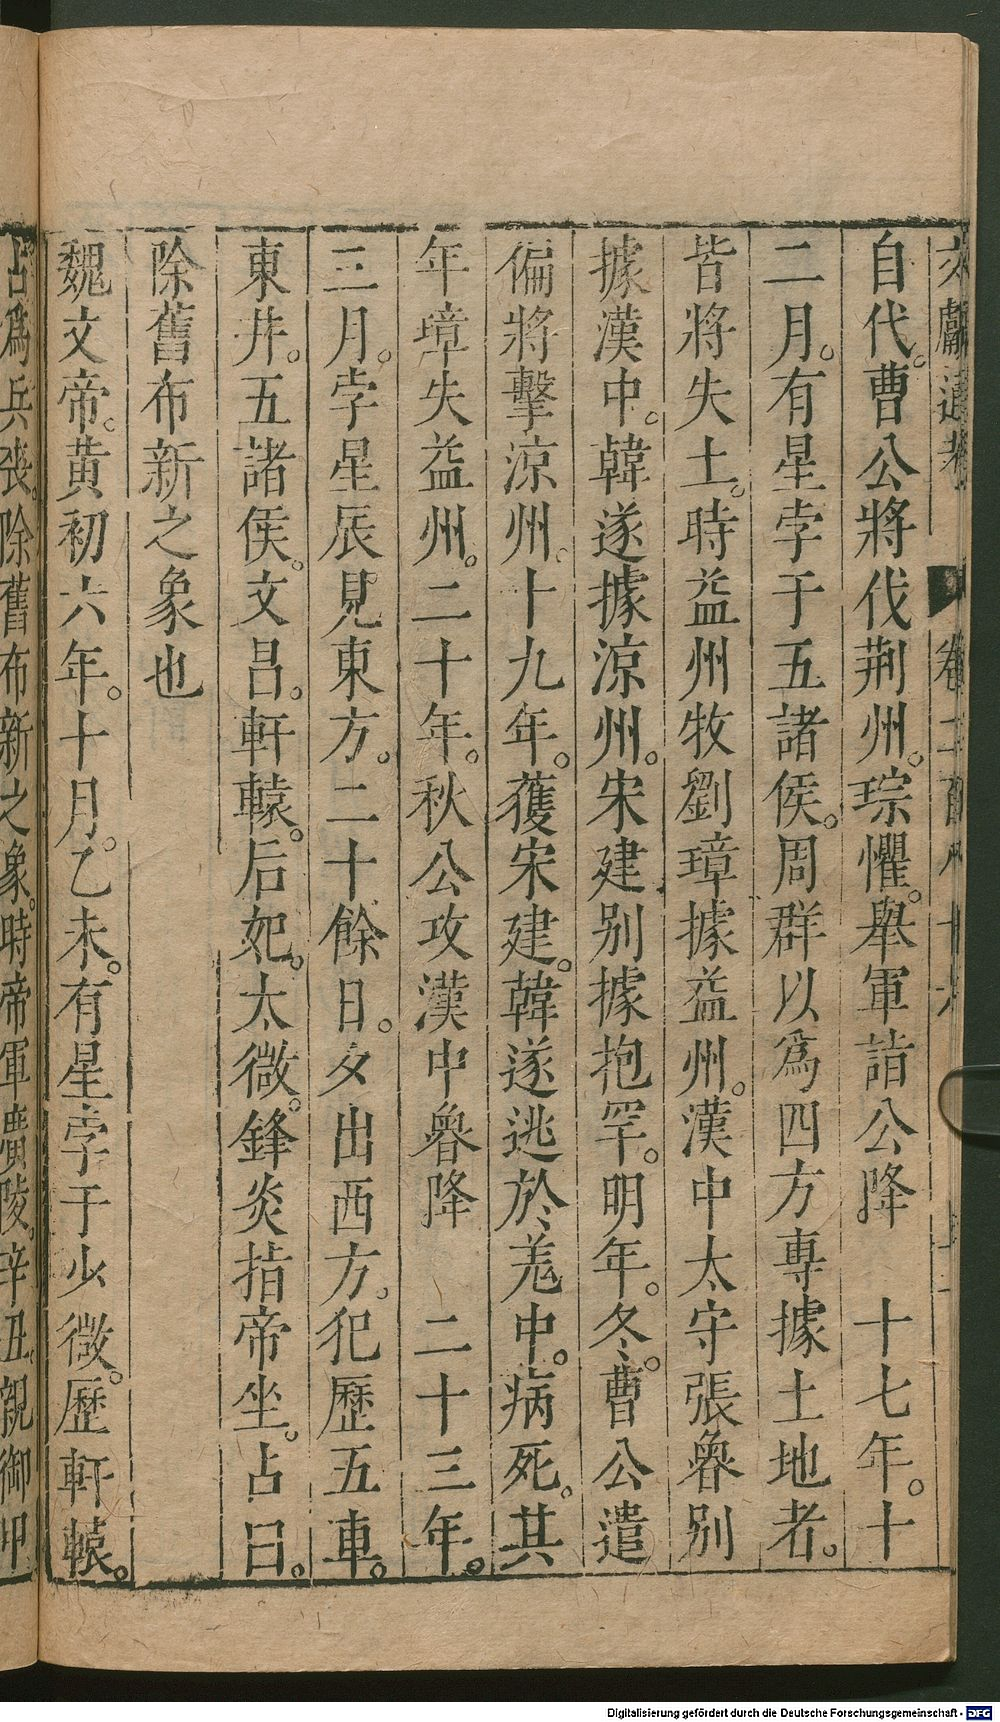 文獻通考 卷二百八十六
自代。曹公將伐荆州。琮懼。舉軍詣公降 十七年。十
二月。有星孛于五諸侯。周群以爲四方專據土地者。
皆將失土。時益州牧劉璋據益州。漢中太守張魯別
據漢中。韓遂據涼州。宋建別據抱罕。明年。冬。曹公遣
偏將擊涼州。十九年。獲宋建。韓遂逃於羌中。病死。其
年璋失益州。二十年。秋公攻漢中魯降 二十三年。
三月。孛星辰見東方。二十餘日。夕出西方。犯歷五車。
東井。五諸侯。文昌。軒轅。后妃。太微。鋒炎指帝坐。占曰。
除舊布新之象也
魏文帝。黄初六年。十月。乙未。有星孛于少微。歷軒轅。
占爲兵喪。除舊布新之象。時帝軍廣陵。辛丑。親御甲
Digitalisierung gefördert durch die Deutsche Forschungsgemeinschaft - DFG